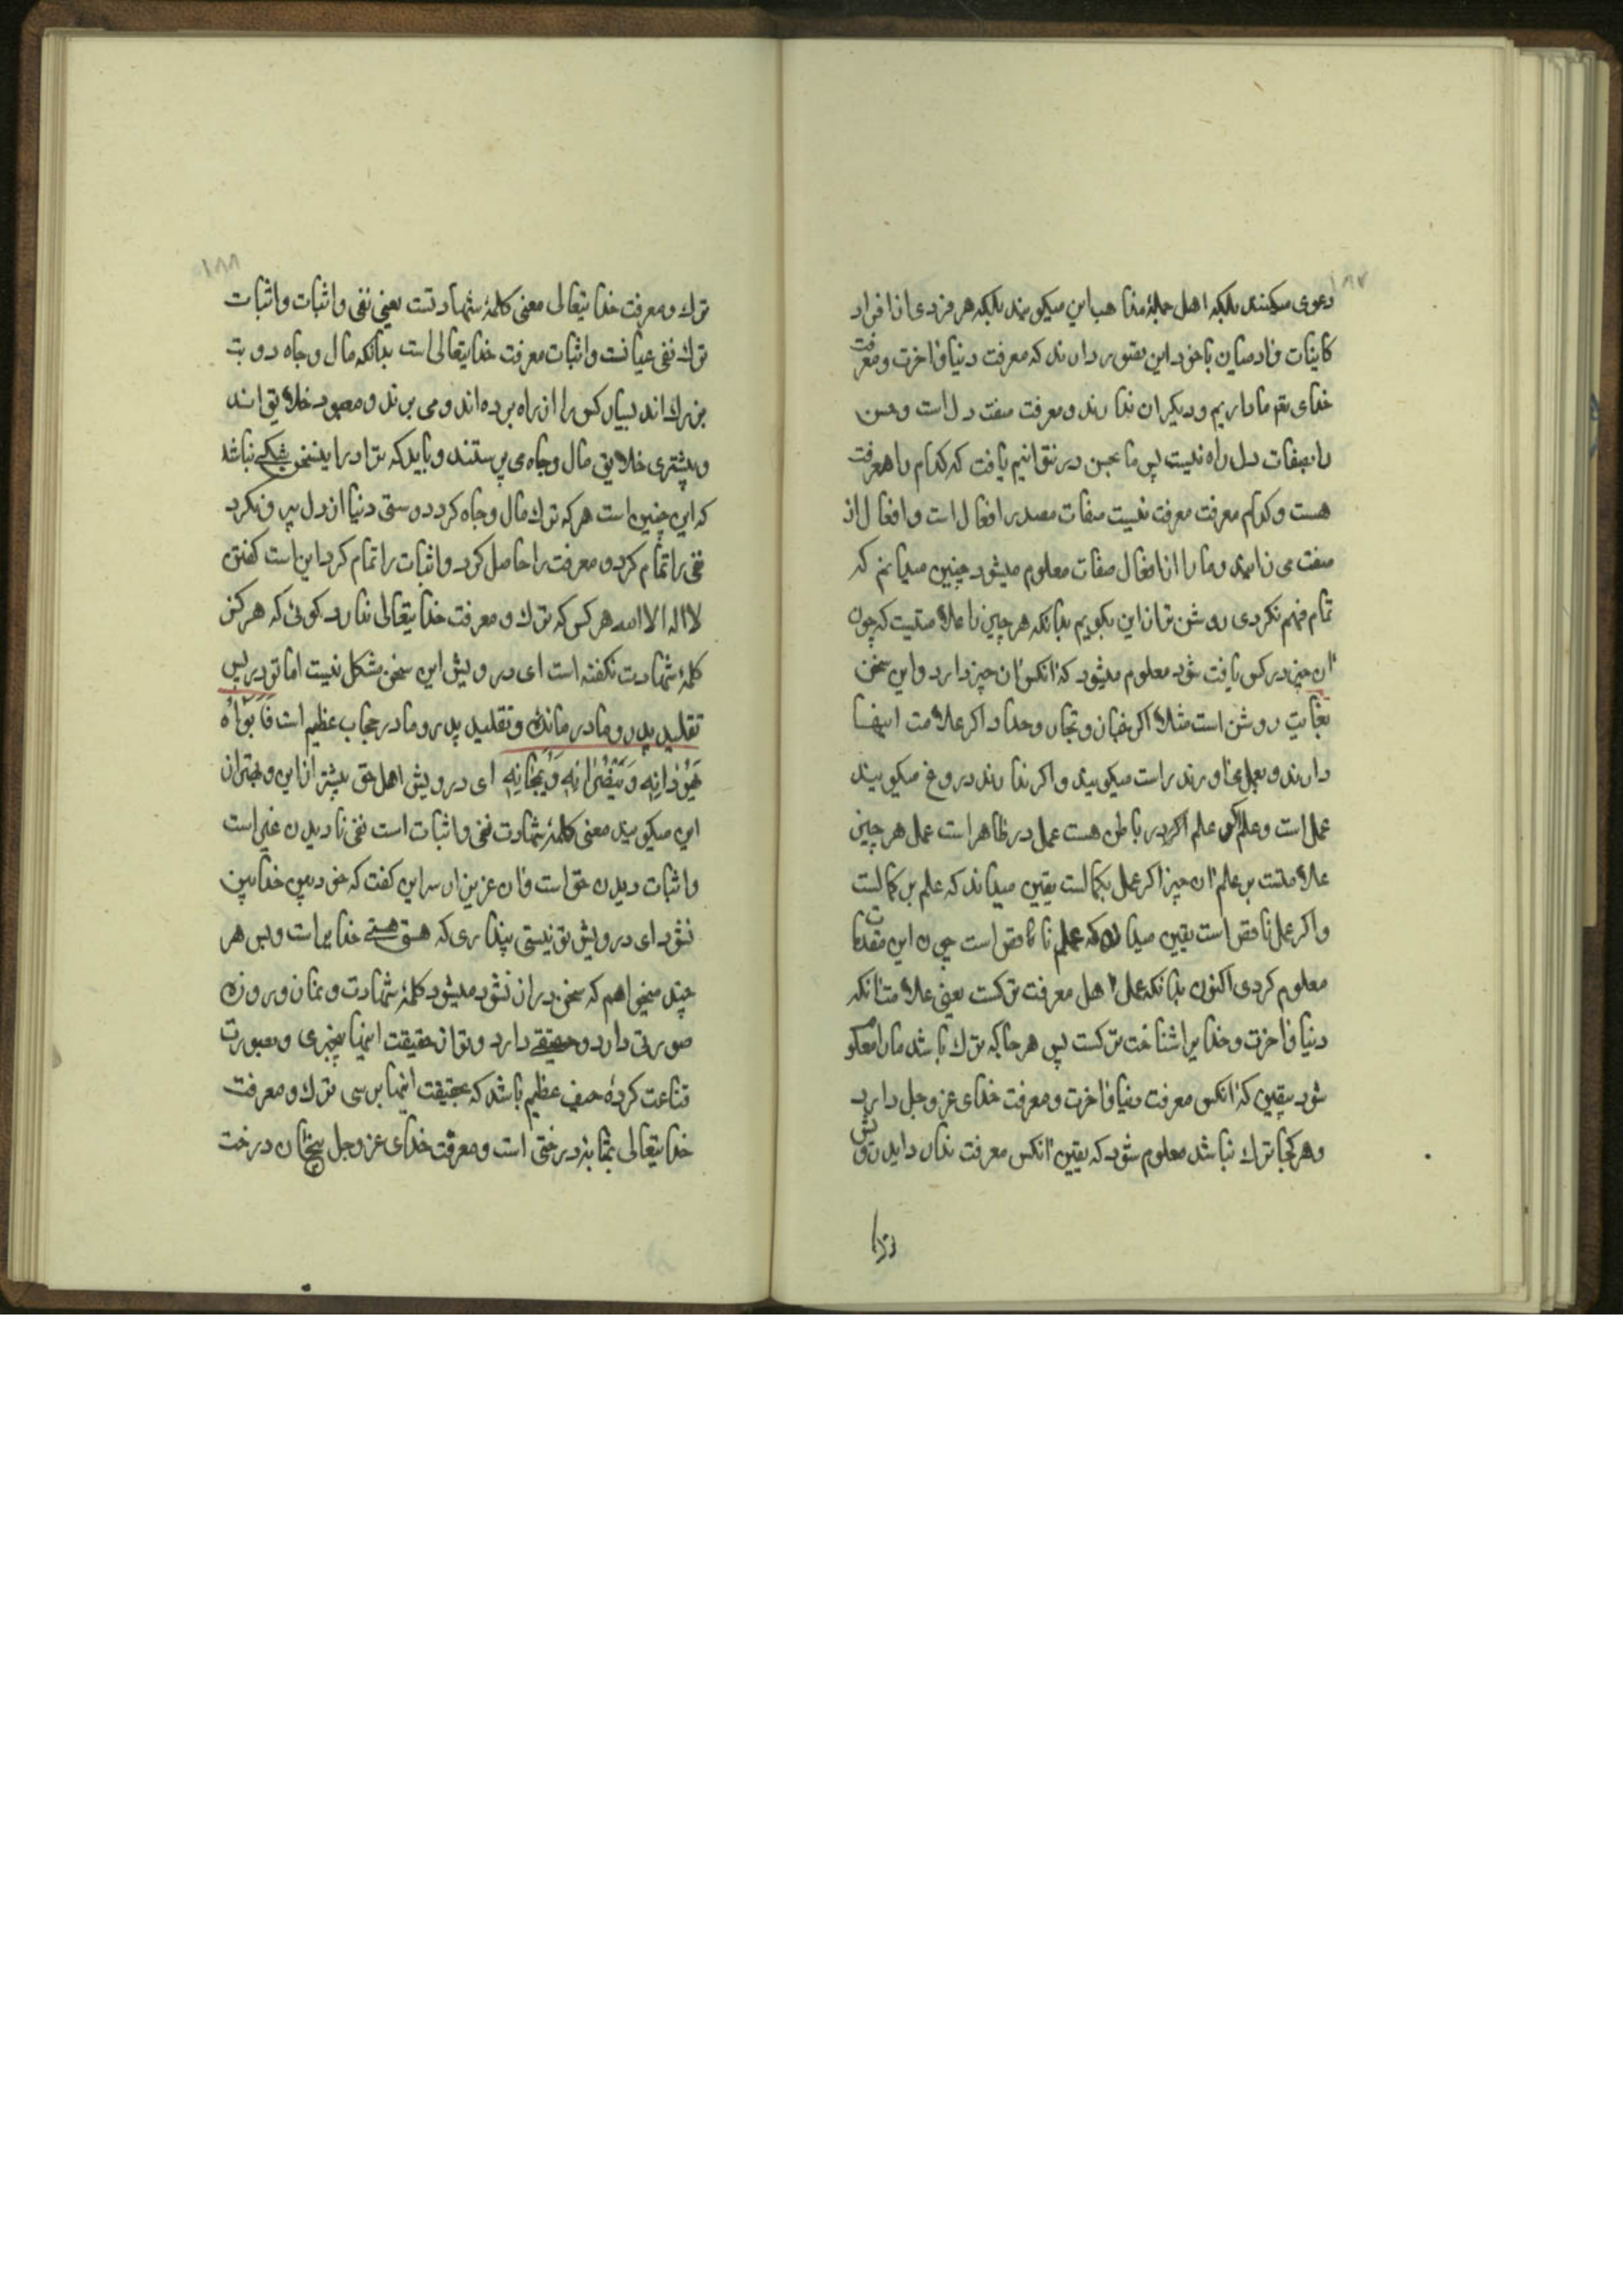 ۱۸۷
دعوی میکنند بلکه اهل جملهٔ مذاهب این میکویند بلکه هر فردی از افراد
کاینات و ادمیان با خود این تصور دارند که معرفت دنیا و اخرت و معرفت
خدای تعم ما داریم و دیکران ندارند و معرفت صفت دل است و حس
را بصفات دل راه نیست پس ما بحس در نتوانیم یافت که کدام را معرفت
هست و کدام معرفت معرفت نیست صفات مصدر افعال است و افعال از
صفت می زاید و ما را از افعال صفات معلوم میشود چنین میدانم که
تمام فهم نکردی روشن تر از این بکویم بدانکه هر چیز را علامتیست که چون
ان چیز در کس یافت شود معلوم میشود که انکس ان چیز دارد و این سخن
بغایت روشن است مثلا اکر خباز و نجار و حداد اکر علامت اینها
دارند و بعمل می اورند راست میکویند و اکر ندارند دروغ میکویند
عمل است و علم علم اکر در باطن هست عمل در ظاهر است عمل هر چیز
علامتست بر علم ان چیز اکر عمل بکمالست یقین میداند که علم بر کمالست
و اکر عمل ناقص است یقین میدان که علم ناقص است چون این مقدمات
معلوم کردی اکنون بدانکه عمل اهل معرفت ترکست یعنی علامت انکه
دنیا و اخرت و خدایرا شناخت ترکست پس هر جا که ترک باشد ما را معلوم
شود بیقین که انکس معرفت دنیا و اخرت و معرفت خدای عز و جل دارد
و هر کجا ترک نباشد معلوم شود که یقین انکس معرفت ندارد ای درویش
ترک
۱۸۸
ترک و معرفت خدایتعالی معنی کلمهٔ شهادتست یعنی نفی و اثبات و اثبات
ترک نفی عیانست و اثبات معرفت خدایتعالی است بدانکه مال و جاه دو بت
بزرک اند بسیار کس را از راه برده اند و می برند و معبود خلایق اند
و بیشتری خلایق مال و جاه می پرستند و باید که ترا در این سخن شکی نباشد
که این چنین است هر که ترک مال و جاه کرد دوستی دنیا از دل بیرون کرد
نفی را تمام کرد و معرفت را حاصل کرد و اثبات را تمام کرد این است کفتن
لا اله الا الله هر کس که ترک و معرفت خدایتعالی ندارد کوئی که هرکز
کلمهٔ شهادت نکفته است ای درویش این سخن مشکل نیست اما تو در پس
تقلید پدر و مادر ماندهٔ و تقلید پدر و مادر حجاب عظیم است فَاَبَوَاهُ
یُهَوِّدَانِهِ وَ یُنَصِّرَانِهِ وَ یُمَجِّسَانِهِ ای درویش اهل حق بیشتر از این و بهتر از
این میکویند معنی کلمهٔ شهادت نفی و اثبات است نفی نادیدن غیر است
و اثبات دیدن حق است و ان عزیز از سر این کفت که خود بین خدا بین
نشود ای درویش تو نیستی پنداری که هستی هستی خدایراست و بس هر
چند میخواهم که سخن دراز نشود میشود کلمهٔ شهادت و نماز و روزه
صورتی دارد و حقیقتی دارد و تو از حقیقت اینها بیخبری و بصورت
قناعت کردهٔ حیف عظیم باشد که بحقیقت اینها نرسی ترک و معرفت
خدایتعالی بمثابهٔ درختی است و معرفت خدای عز و جل بیخ ان درخت